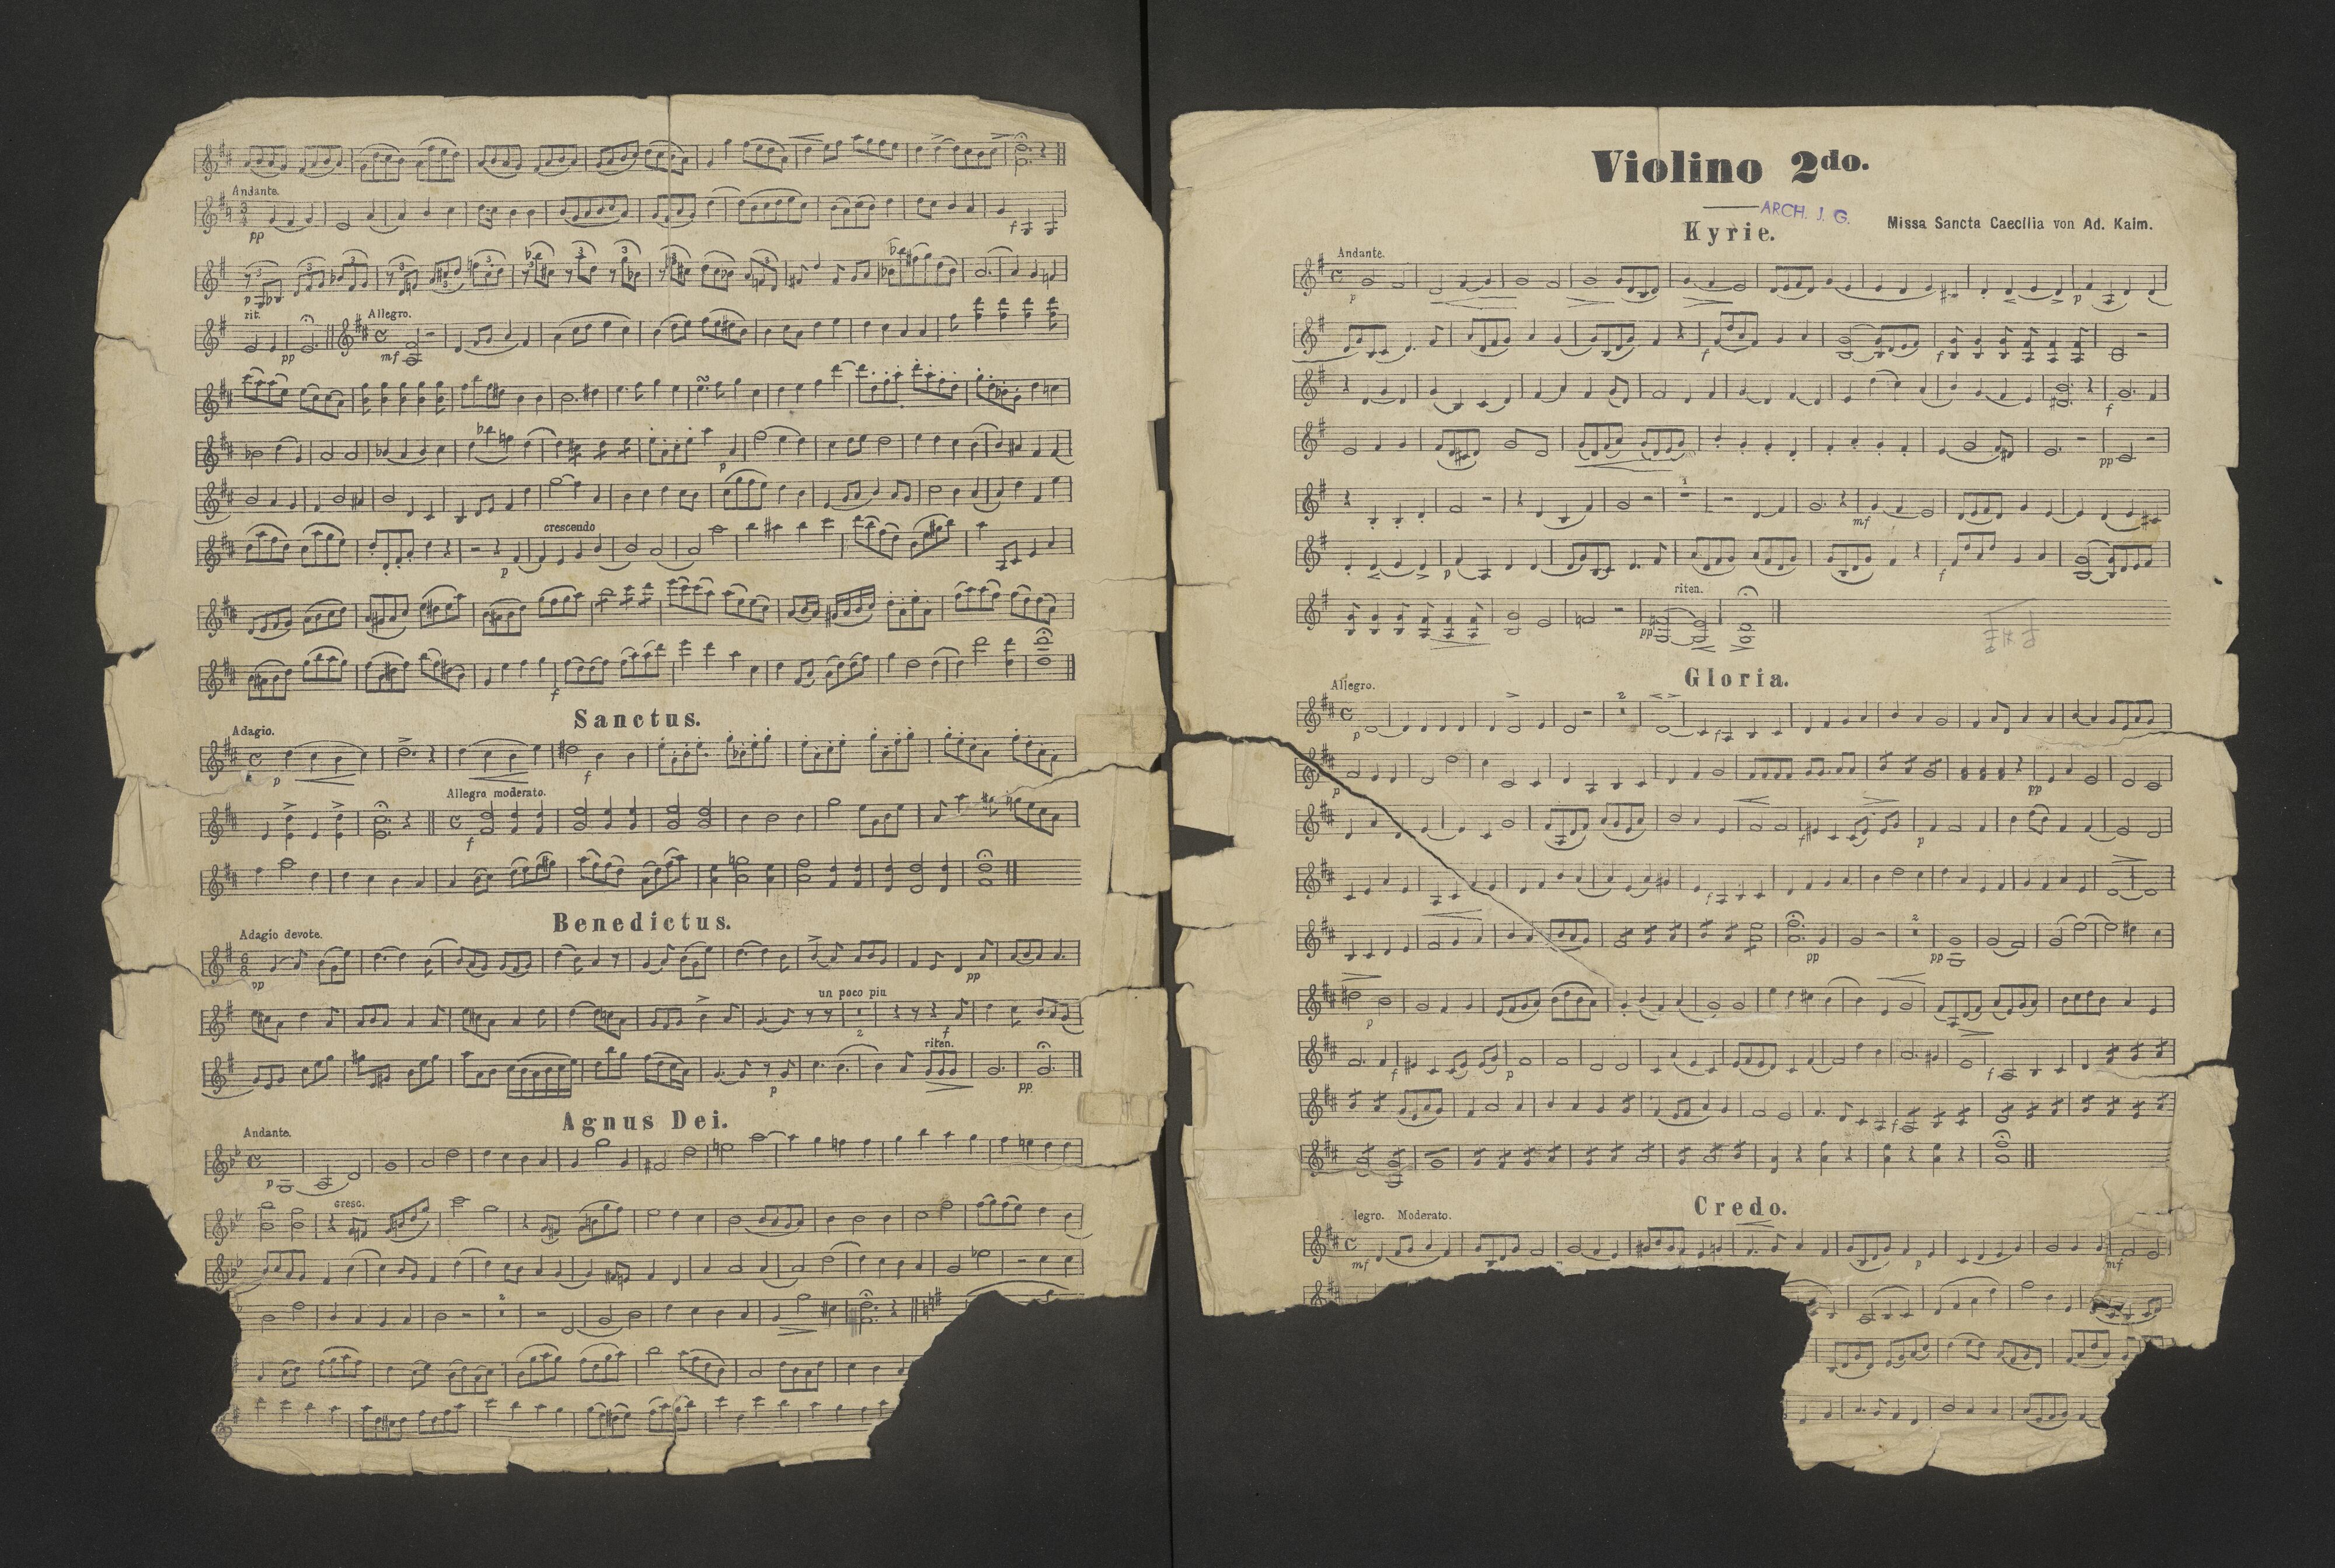 Andante.
pp
f
3
3
3
3
3
3
3
3
3
3
3
p
rit.
Allegro.
pp
mf
p
crescendo
p
f
Sanctus.
Adagio.
p
f
Allegro moderato.
f
Benedictus.
Adagio devote.
6
8
pp
pp
un poco piu
2
f
riten.
p
pp
Agnus Dei.
Andante.
p
cresc.
2
Violino 2do.
ARCH. J. G.
Missa Sancta Caecilia von Ad. Kaim.
Kyrie.
Andante.
p
p
f
f
f
pp
1
mf
p
f
riten.
pp
Gloria.
Allegro.
2
p
f
p
pp
f
p
f
2
pp
pp
p
f
p
f
f
Credo.
legro. Moderato.
mf
p
mf